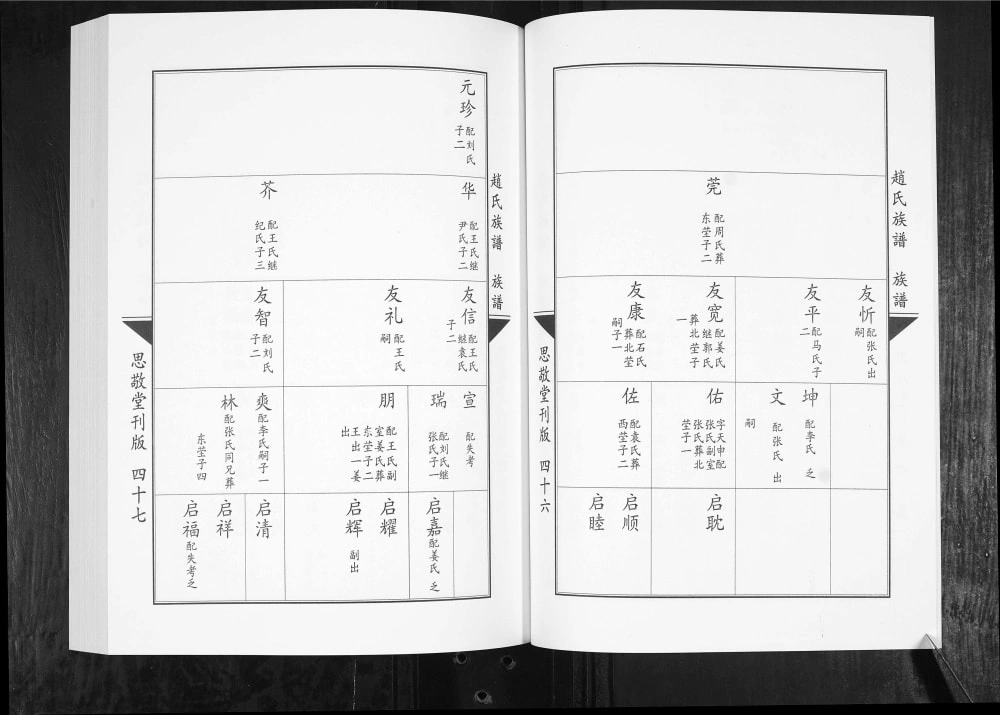 趙氏族譜 族譜
莞
配周氏葬
东茔子二
友忻
配张氏出
嗣
友平
配马氏子
二
友宽
配姜氏
继郭氏
葬北茔子
一
友康
配石氏
葬北茔
嗣子一
坤
配李氏 乏
文
配张氏 出
嗣
佑
字天申配
张氏副室
张氏葬北
茔子一
佐
配袁氏葬
西茔子二
启耽
启顺
启睦
思敬堂刊版 四十六
趙氏族譜 族譜
元珍
配刘氏
子二
华
配王氏继
尹氏子二
芥
配王氏继
纪氏子三
友信
配王氏
继袁氏
子二
友礼
配王氏
嗣
友智
配刘氏
子二
宣
配失考
瑞
配刘氏继
张氏子一
朋
配王氏副
室姜氏葬
东茔子二
王出一姜
出
爽
配李氏嗣子一
林
配张氏同兄葬
东茔子四
启嘉
配姜氏 乏
启耀
启辉
副出
启清
启祥
启福
配失考乏
思敬堂刊版 四十七